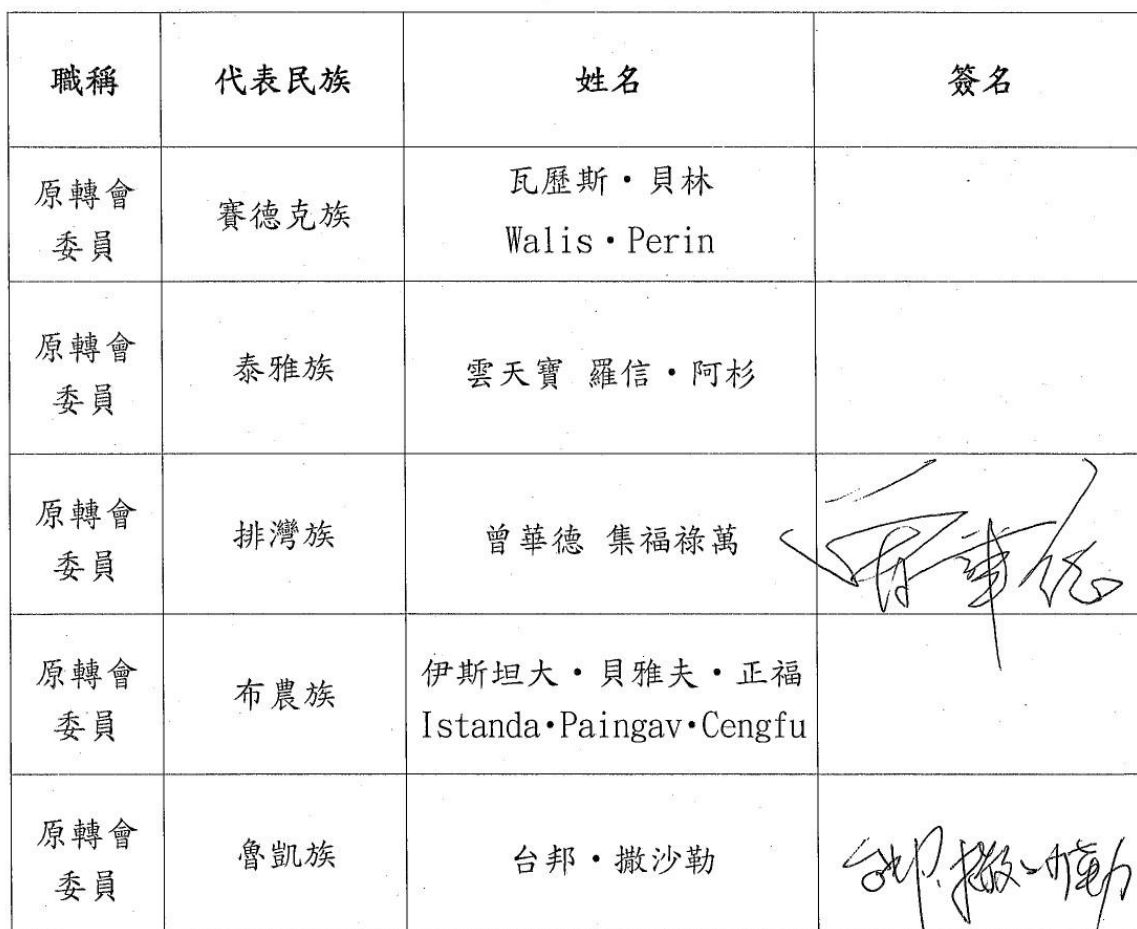 職稱 代表民族 姓名 簽名
原轉會
委員
賽德克族
瓦歷斯·貝林
Walis·Perin
原轉會
委員
泰雅族
雲天寶 羅信·阿杉
原轉會
委員
排灣族
曾華德 集福祿萬
曾華德
原轉會
委員
布農族
伊斯坦大·貝雅夫·正福
Istanda·Paingav·Cengfu
原轉會
委員
魯凱族
台邦·撒沙勒
台邦.撒沙勒